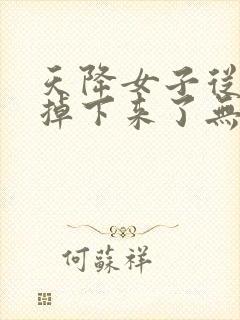 天降女子從
掉下来了無
何蘇祥